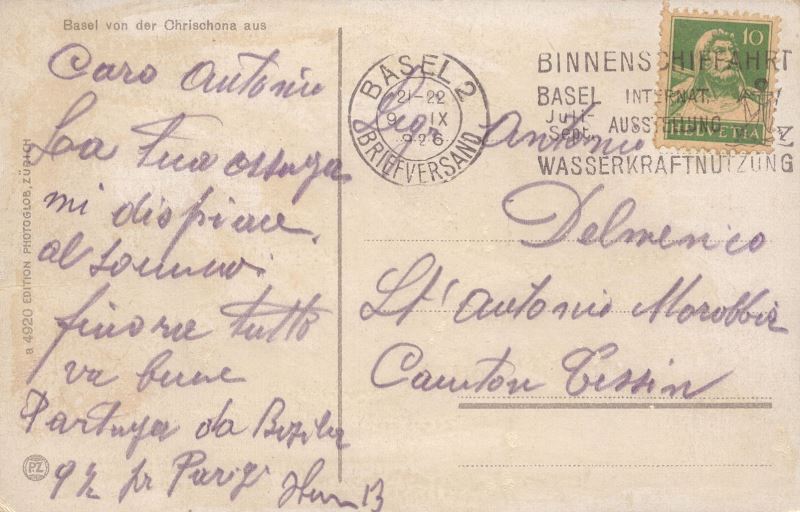 Basel von der Chrischona aus
Caro Antonio
La tua
mi dispiace
al sommo.
finora tutto
va bene
Partenza da
9 ½ pr Parigi
a 4920 EDITION PHOTOGLOB, ZÜRICH
PZ
BASEL 2
21-22
9 IX
926
BRIEFVERSAND
BINNENSCHIFFAHRT
BASEL INTERNAT.
Juli-
Sept. AUSSTELLUNG
WASSERKRAFTNUTZUNG
10
HELVETIA
Sig. Antonio
Delmenico
St' Antonio Morobbia
Canton Tessin